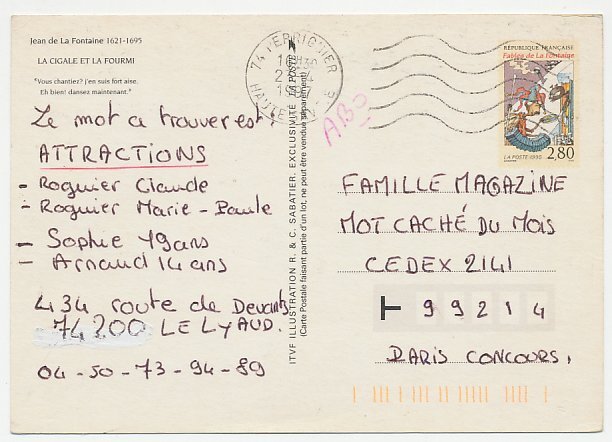 Jean de La Fontaine 1621-1695
LA CIGALE ET LA FOURMI
"Vous chantiez? j'en suis fort aise.
Eh bien! dansez maintenant."
Le mot a trouver est
ATTRACTIONS
- Roguier Claude
- Roguier Marie-Paule
- Sophie 19ans
- Arnaud 14 ans
434 route de
74200 LE LYAUD.
04-50-73-94-89
ITVF ILLUSTRATION R. & C. SABATIER. EXCLUSIVITÉ LA POSTE
(Carte Postale faisant partie d'un lot, ne peut être vendue séparément)
74 PERRIGNIER
1997
HAUTE
ABO
RÉPUBLIQUE FRANÇAISE
Fables de La Fontaine
LA POSTE 1995
2,80
FAMILLE MAGAZINE
MOT CACHÉ DU MOIS
CEDEX 2141
99214
PARIS CONCOURS.